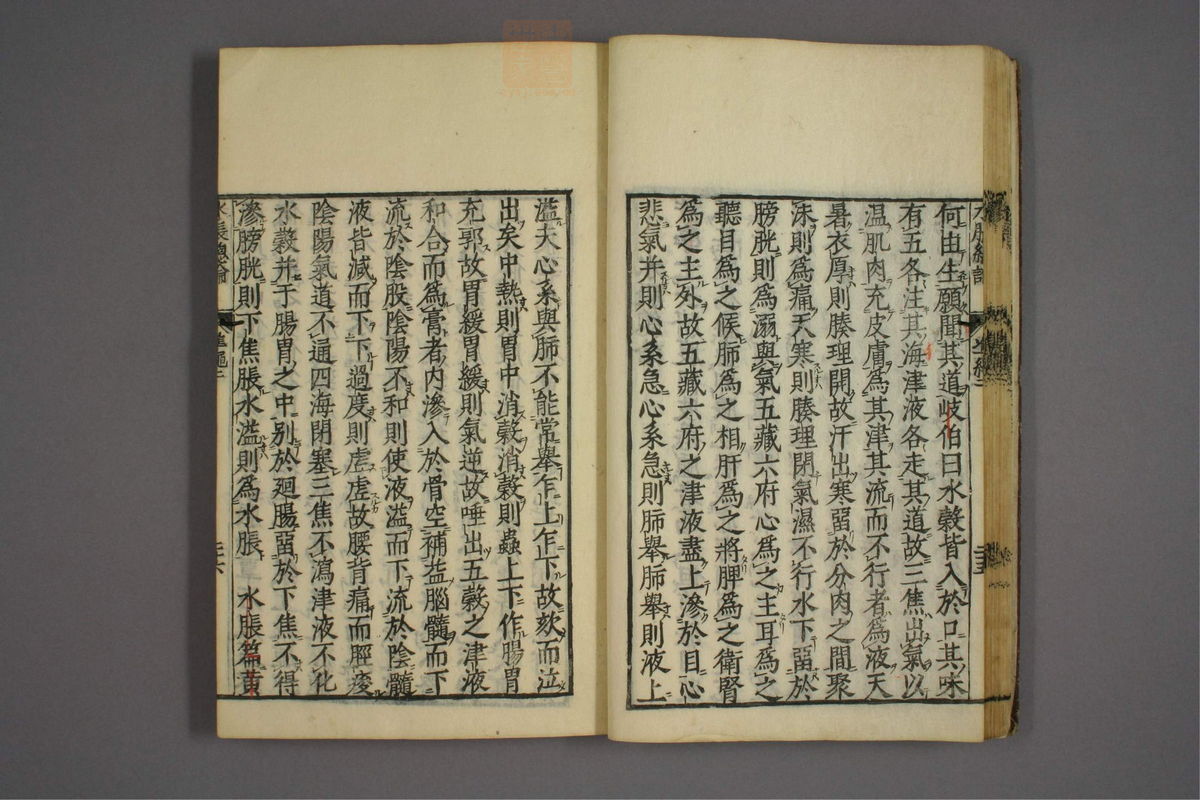 何由生願聞其道岐伯曰水穀皆入於口其味
有五各注其海津液各走其道故三焦出氣以
温肌肉充皮膚為其津其流而不行者為液天
暑衣厚則腠理開故汗出寒留於分肉之間聚
沫則為痛天寒則腠理閉氣濕不行水下留於
膀胱則為溺與氣五藏六府心為之主耳為之
聽目為之候肺為之相肝為之將脾為之衛腎
為之主外故五藏六府之津液盡上滲於目心
悲氣并則心系急心系急則肺舉肺舉則液上
溢夫心系與肺不能常舉乍上乍下故欬而泣
出矣中熱則胃中消穀消穀則蟲上下作腸胃
充郭故胃緩胃緩則氣逆故唾出五穀之津液
和合而為膏者内滲入於骨空補益腦髓而下
流於陰股陰陽不和則使液溢而下流於陰髓
液皆減而下下過度則虚虚故腰背痛而脛痠
陰陽氣道不通四海閉塞三焦不瀉津液不化
水穀并于腸胃之中別於廻腸留於下焦不得
滲膀胱則下焦脹水溢則為水脹 水脹篇黄
二十六